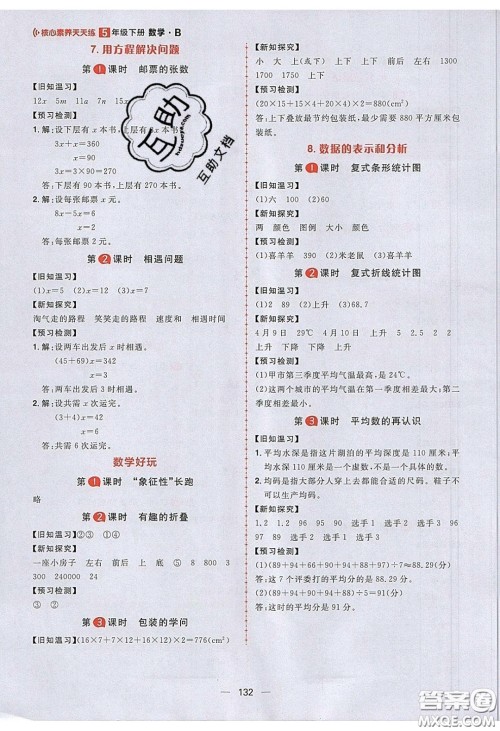 核心素养天天练 5年级下册 数学·B
7. 用方程解决问题
第1课时 邮票的张数
【旧知温习】
12x 5m 11a 7n 15x
【预习检测】
1. 解:设下层有 x 本书,上层有 3x 本书。
3x+x=360
x=90
3x=3×90=270
答:下层有 90 本书,上层有 270 本书。
2. 解:设每张邮票 x 元。
8x-5x=6
x=2
答:每张邮票 2 元。
第2课时 相遇问题
【旧知温习】
(1)x=5 (2)x=12 (3)x=27
【新知探究】
淘气走的路程 笑笑走的路程 速度和 相遇时间
【预习检测】
1. 解:设两车出发后 x 时相遇。
(45+69)x=342
x=3
答:两车出发后 3 时相遇。
2. 解:设共需 x 次运完。
(3+4)x=42
x=6
答:共需 6 次运完。
数学好玩
第1课时 “象征性”长跑
略
第2课时 有趣的折叠
【旧知温习】②③ ①④
【新知探究】
一座小房子 左右 前后 上 ⑤ 8 800 3
300 240000
【预习检测】
③ ② ①
第3课时 包装的学问
【旧知温习】(16×7+7×12+16×12)×2=776(cm²)
【新知探究】
小 大 上(或下) 上下 前后 左右 1300
1700 1750 上下 1300
【预习检测】
(20×15+15×4+20×4)×2=880(cm²)
答:上下叠放最节约包装纸,最少需要 880 平方厘米包
装纸。
8. 数据的表示和分析
第1课时 复式条形统计图
【旧知温习】
(1)六 100 (2)60
【新知探究】
两 颜色 图例 大小 颜色
【预习检测】
(1)喜羊羊 390 (2)米老鼠 (3)喜羊羊
第2课时 复式折线统计图
【旧知温习】
(1)2 89 (2)上升 (3)68.7
【新知探究】
4月9日 29℃ 4月10日 上升 5 2.5 2 2
上升 下降 下降 上升
【预习检测】
(1)甲市第三季度平均气温最高,是 24℃。
(2)这两个城市的平均气温第一季度相差最大,第二季
度相差最小。
第3课时 平均数的再认识
【旧知温习】
1. 平均水深是指这片湖泊的平均深度是 110 厘米;平
均水深是 110 厘米并不代表湖泊所有的深度都是
110 厘米。
2. 均码是指大部分人穿上去都能合适的尺码。鞋子不
可以生产均码。
【新知探究】
1.2 1.2 96 95 92 选手1 选手2 选手3
96 95 92 选手1 选手2 选手3
【预习检测】
(1)(89+94+66+94+90+94+91)÷7≈88.29(分)
答:这 7 个评委打的平均分是 88.29 分。
(2)(89+94+90+94+88)÷5=91(分)
答:这时的平均分是 91 分。
132
互助
互助文档
答案圈
MXQE.COM